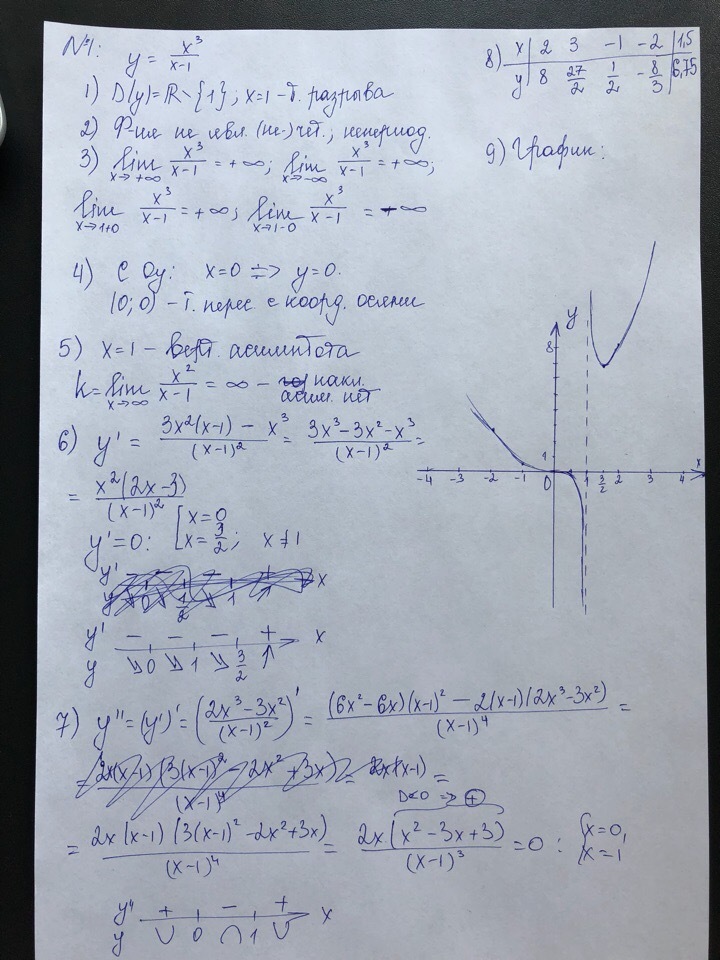 №1: y = x³/(x-1)
1) D(y) = R \ {1}; x=1 – т. разрыва
2) Ф-ия не явл. (не-) чет., непериод.
3) lim x→+∞ x³/(x-1) = +∞; lim x→-∞ x³/(x-1) = +∞;
lim x→1+0 x³/(x-1) = +∞; lim x→1-0 x³/(x-1) = -∞
4) С Oy: x=0 ⇒ y=0.
(0; 0) – т. перес. с коорд. осями
5) x=1 – верт. асимптота
k = lim x→∞ x²/(x-1) = ∞ – накл.
асим. нет
6) y' = (3x²(x-1) - x³)/(x-1)² = (3x³-3x²-x³)/(x-1)² =
= x²(2x-3)/(x-1)²
y'=0: [x=0
x=3/2; x≠1
y' – – – + x
y ↘ 0 ↘ 1 ↘ 3/2 ↗
7) y'' = (y')' = ((2x³-3x²)/(x-1)²)' = ((6x²-6x)(x-1)² - 2(x-1)(2x³-3x²))/(x-1)⁴ =
D<0 → ⊕
= 2x(x-1)(3(x-1)² - 2x² + 3x)/(x-1)⁴ = 2x(x²-3x+3)/(x-1)³ = 0: {x=0,
x=1
y'' + – + x
y ∪ 0 ∩ 1 ∪
8) x | 2 3 -1 -2 | 1,5
y | 8 27/2 1/2 -8/3 | 6,75
9) График:
y
8
1
-4 -3 -2 -1 0 1 3/2 2 3 4 x